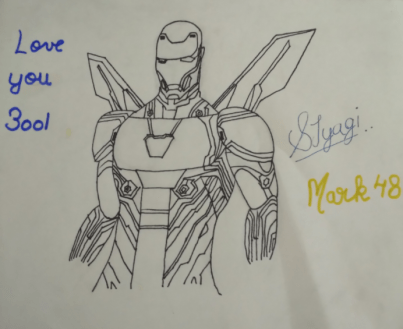 Love
you
3001
STyagi..
Mark 48